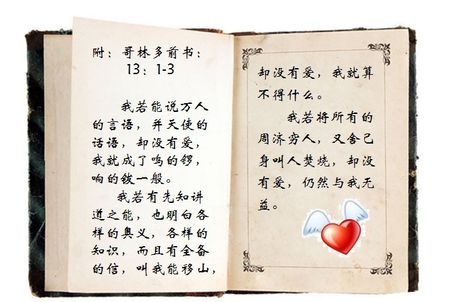 附：哥林多前书：
13：1-3
我若能说万人
的言语，并天使的
话语，却没有爱，
我就成了鸣的锣，
响的钹一般。
我若有先知讲
道之能，也明白各
样的奥义，各样的
知识，而且有全备
的信，叫我能移山，
却没有爱，我就算
不得什么。
我若将所有的
周济穷人，又舍己
身叫人焚烧，却没
有爱，仍然与我无
益。